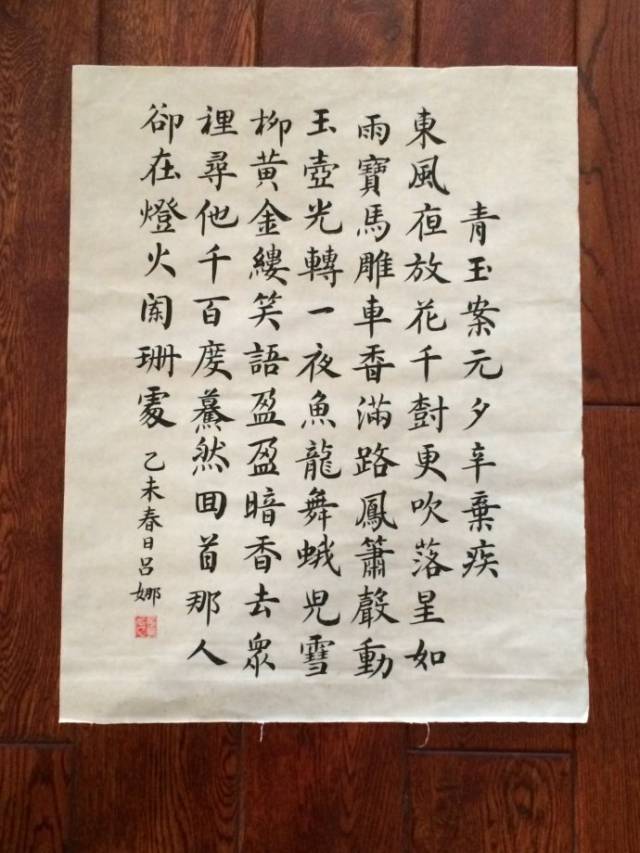 青玉案元夕辛棄疾
東風亱放花千樹更吹落星如
雨寶馬雕車香滿路鳳簫聲動
玉壺光轉一夜魚龍舞蛾兒雪
柳黃金縷笑語盈盈暗香去眾
裡尋他千百度驀然囬首那人
卻在燈火闌珊處
乙未春日呂娜